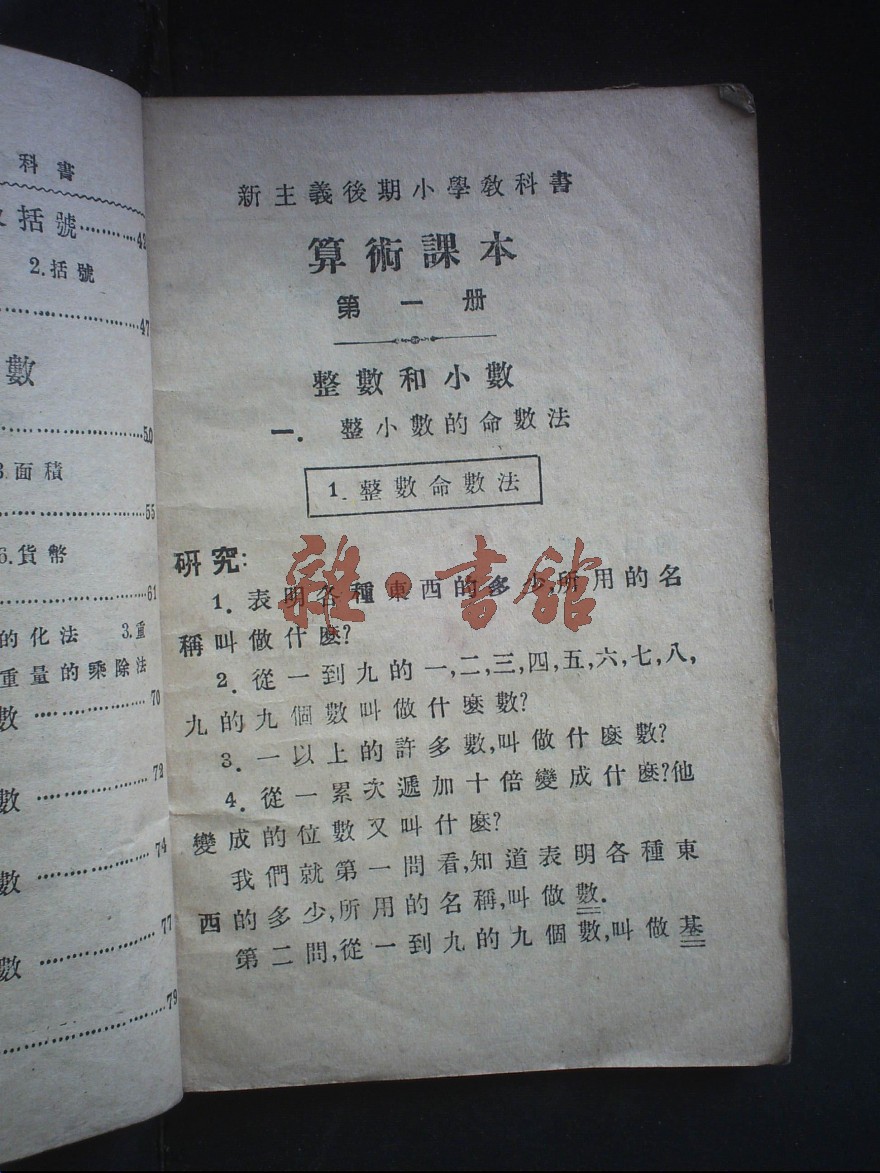 科書
括號……………49
2.括號
……………47
數
……………50
面積
……………55
6.貨幣
……………61
的化法 3.重
重量的乘除法
數……………70
數……………72
數……………74
數……………77
……………79
新主義後期小學教科書
算術課本
第一册
整數和小數
一. 整小數的命數法
1. 整數命數法
研究:
1. 表明各種東西的多少,所用的名
稱叫做什麼?
2. 從一到九的一,二,三,四,五,六,七,八,
九的九個數叫做什麼數?
3. 一以上的許多數,叫做什麼數?
4. 從一累次遞加十倍變成什麼?他
變成的位數又叫什麼?
我們就第一問看,知道表明各種東
西的多少,所用的名稱,叫做數.
第二問,從一到九的九個數,叫做基
雜·書館